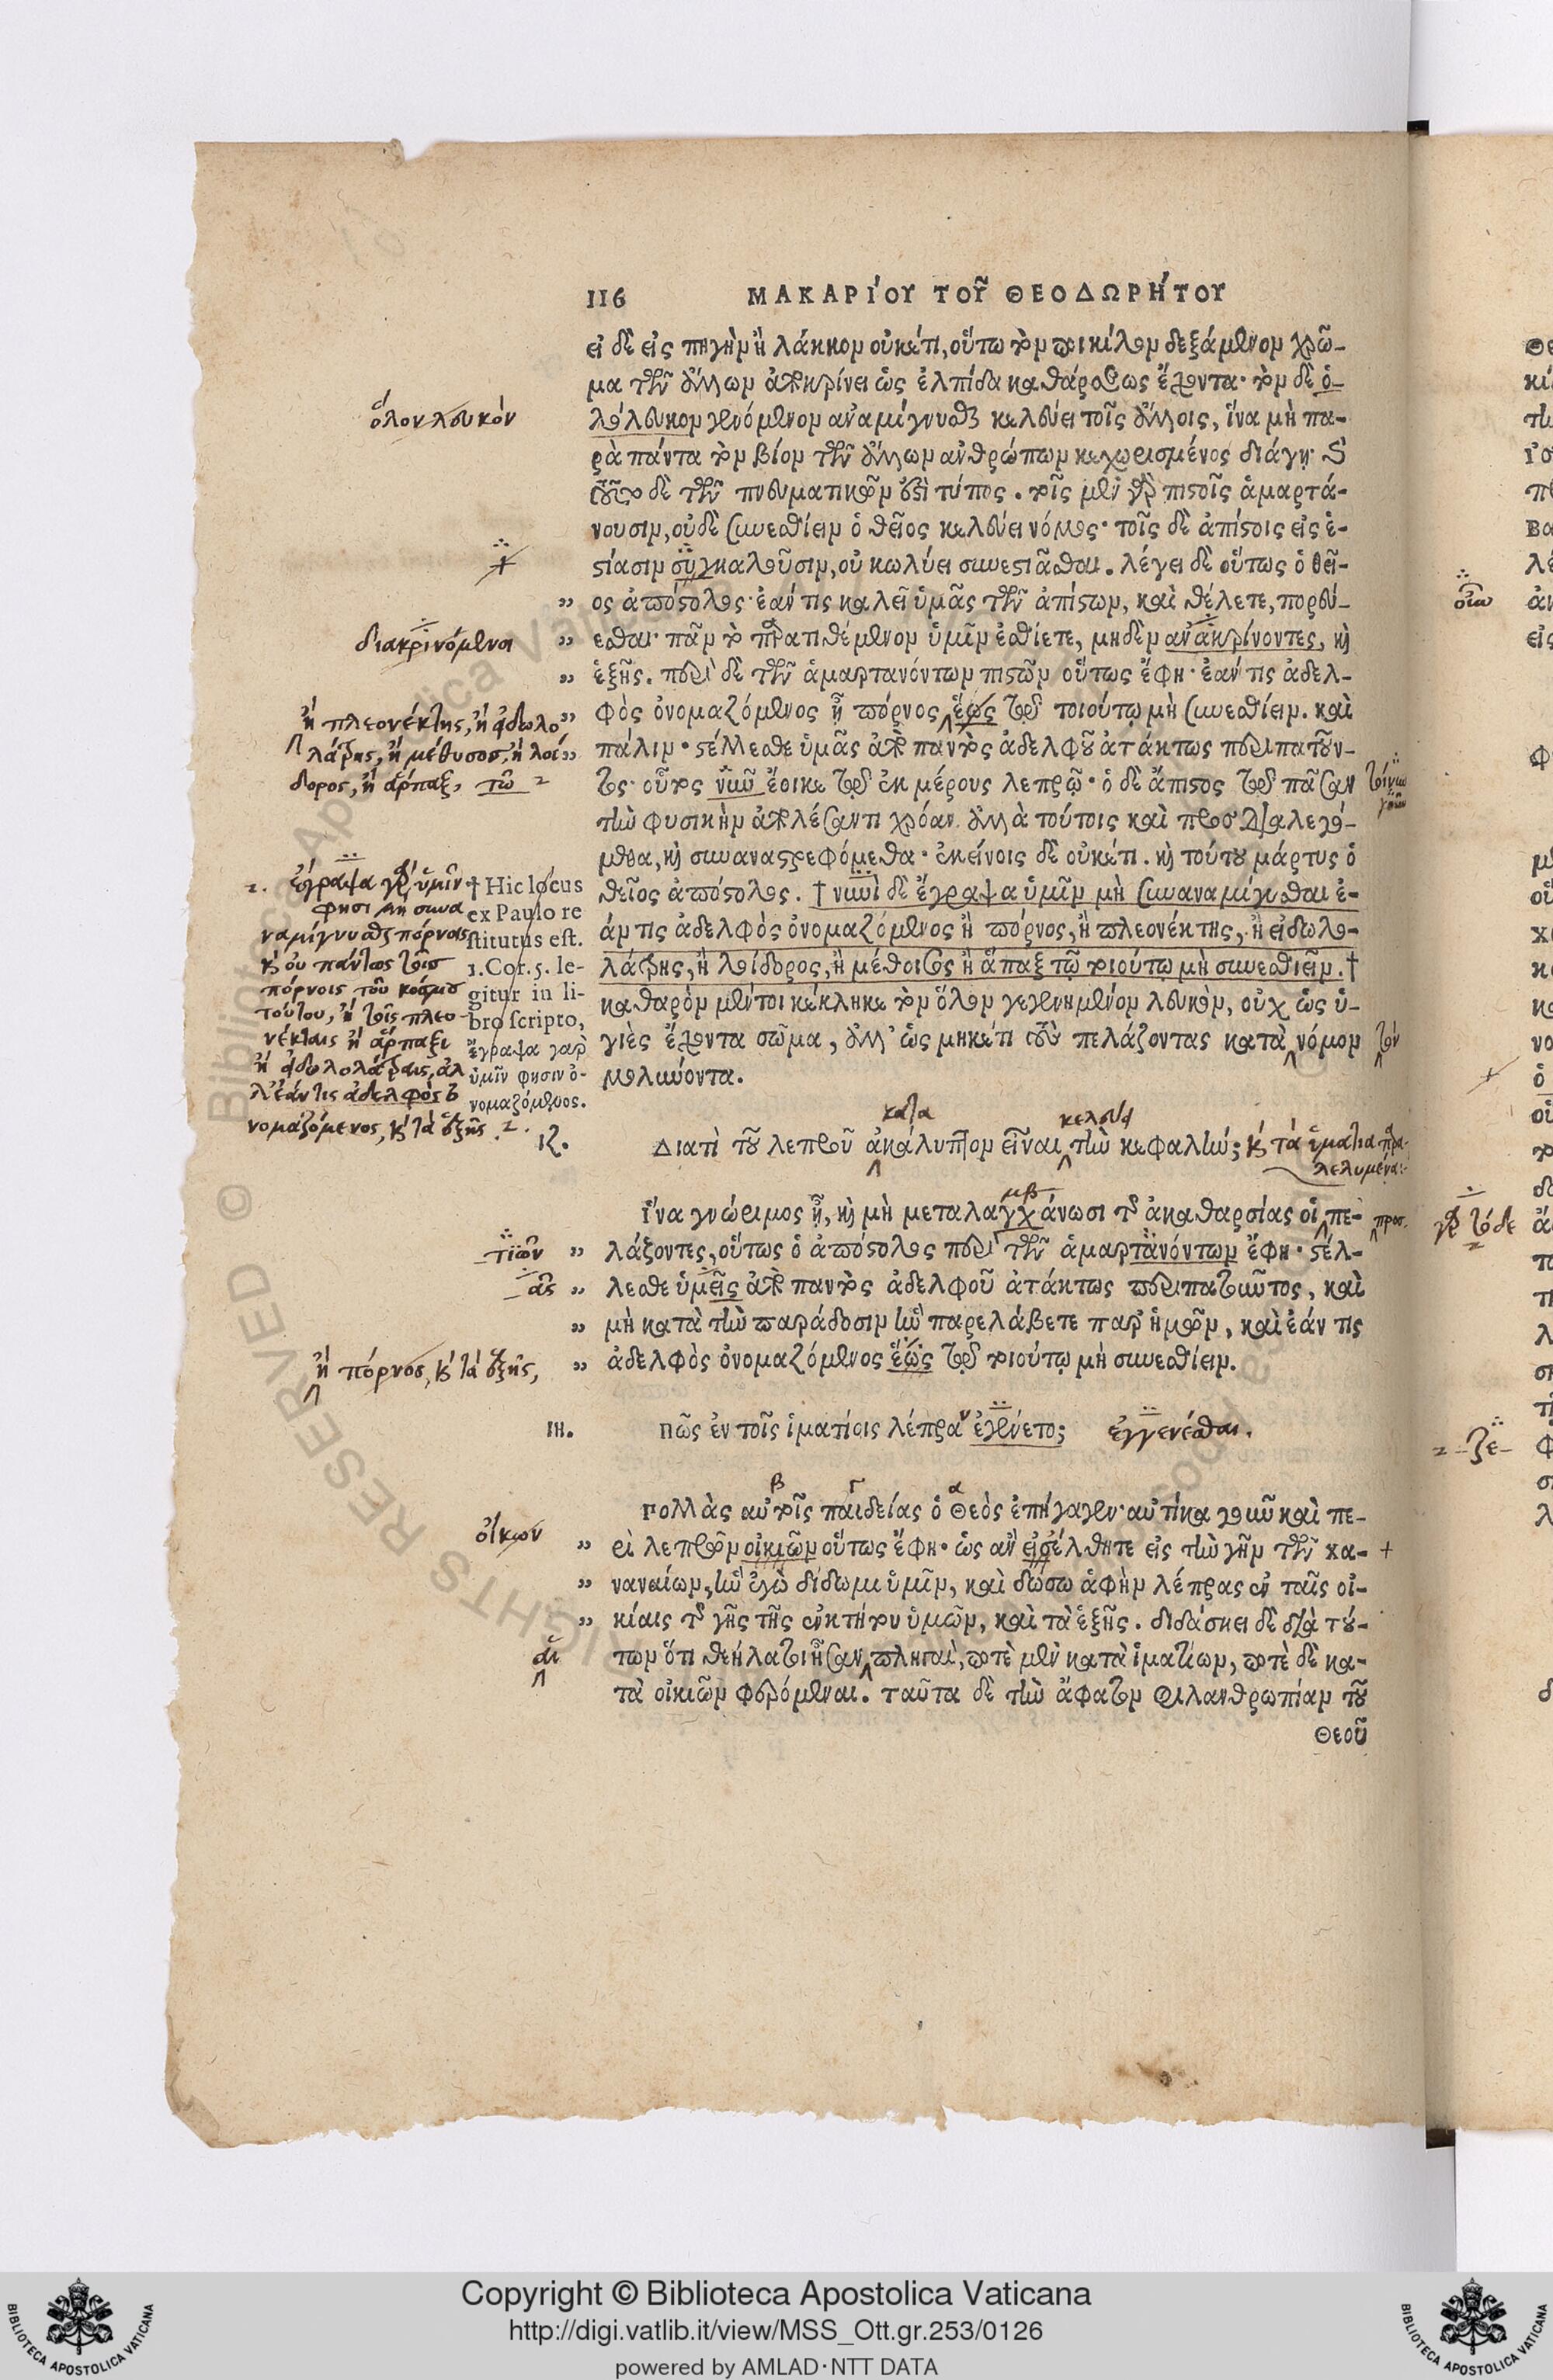 116 ΜΑΚΑΡΊΟΥ ΤΟΥ͂ ΘΕΟΔΩΡΉΤΟΥ
εἰ δὲ εἰς πηγὴν ἢ λάκκον οὐκέτι, οὕτω τὸν ποικίλον δεξάμενον χρῶ-
μα τῶν ἄλλων ἀποκρίνει ὡς ἐλπίδα καθάρσεως ἔχοντα· τὸν δὲ ὁ-
ὅλον λευκὸν
λόλευκον γενόμενον ἀναμίγνυσθαι κελεύει τοῖς ἄλλοις, ἵνα μὴ πα-
ρὰ πάντα τὸν βίον τῶν ἄλλων ἀνθρώπων κεχωρισμένος διάγῃ.
ταῦτα δὲ τῶν πνευματικῶν ἐστὶ τύπος. τοῖς μὲν γὰρ πιστοῖς ἁμαρτά-
νουσιν, οὐδὲ συνεσθίειν ὁ θεῖος κελεύει νόμος· τοῖς δὲ ἀπίστοις εἰς ἑ-
στίασιν συγκαλοῦσιν, οὐ κωλύει συνεστιᾶσθαι. λέγει δὲ οὕτως ὁ θεῖ-
„ ος ἀπόστολος· ἐάν τις καλεῖ ὑμᾶς τῶν ἀπίστων, καὶ θέλετε, πορεύ-
διακρινόμενοι
„ εσθαι· πᾶν τὸ παρατιθέμενον ὑμῖν ἐσθίετε, μηδὲν ἀνακρίνοντες, καὶ
„ ἑξῆς. περὶ δὲ τῶν ἁμαρτανόντων πιστῶν οὕτως ἔφη· ἐάν τις ἀδελ-
ἢ πλεονέκτης, ἢ εἰδωλο
„ φὸς ὀνομαζόμενος ᾖ πόρνος, ἕως τῷ τοιούτῳ μὴ συνεσθίειν. καὶ
λάτρης, ἢ μέθυσος, ἢ λοί
„ πάλιν· στέλλεσθε ὑμᾶς ἀπὸ παντὸς ἀδελφοῦ ἀτάκτως περιπατοῦν-
δορος, ἢ ἅρπαξ, τῷ
τος· οὗτος νῦν ἔοικε τῷ ἐκ μέρους λεπρῷ· ὁ δὲ ἄπιστος τῷ πᾶσαν
τὴν φυσικὴν ἀπολέσαντι χρόαν. ἀλλὰ τούτοις καὶ προσδιαλεγό-
μεθα, καὶ συναναστρεφόμεθα· ἐκείνοις δὲ οὐκέτι. καὶ τούτου μάρτυς ὁ
θεῖος ἀπόστολος. † νυνὶ δὲ ἔγραψα ὑμῖν μὴ συναναμίγνυσθαι ἐ-
άν τις ἀδελφὸς ὀνομαζόμενος ἢ πόρνος, ἢ πλεονέκτης, ἢ εἰδωλο-
λάτρης, ἢ λοίδορος, ἢ μέθοισος ἢ ἅπαξ τῷ τοιούτω μὴ συνεσθιεῖν. †
καθαρὸν μέντοι κέκληκε τὸν ὅλον γεγενημένον λευκὸν, οὐχ ὡς ὑ-
γιὲς ἔχοντα σῶμα, ἀλλ' ὡς μηκέτι τοὺς πελάζοντας κατὰ νόμον
τὸν
μολύνοντα.
ἔγραψα γὰρ ὑμῖν
φησι μὴ συνα
ναμίγνυσθαι πόρνοις
καὶ οὐ πάντως τοῖς
πόρνοις τοῦ κόσμου
τούτου, ἢ τοῖς πλεο-
νέκταις ἢ ἅρπαξι
ἢ εἰδωλολάτραις, ἀλ
λ' ἐάν τις ἀδελφὸς ὀ
νομαζόμενος, καὶ τὰ ἑξῆς.
† Hic locus
ex Paulo re
stitutus est.
1. Cor. 5. le-
gitur in li-
bro scripto,
ἔγραψα γαρ
ὑμῖν φησιν ὀ-
νομαζόμενος.
κατα κελεύει
ιζ. Διατὶ τοῦ λεπροῦ ἀκάλυπτον εἶναι τὴν κεφαλήν; καὶ τὰ ἱμάτια παρα-
λελυμένα:
μβ
Ἵνα γνώριμος ᾖ, καὶ μὴ μεταλαγχάνωσι τῆς ἀκαθαρσίας οἱ πε-
προσ.
„ λάζοντες, οὕτως ὁ ἀπόστολος περὶ τῶν ἁμαρτανόντων ἔφη· στέλ-
ᾶς
„ λεσθε ὑμεῖς ἀπὸ παντὸς ἀδελφοῦ ἀτάκτως περιπατοῦντος, καὶ
„ μὴ κατὰ τὴν παράδοσιν ἣν παρελάβετε παρ' ἡμῶν, καὶ ἐάν τις
ἢ πόρνος, καὶ τὰ ἑξῆς,
„ ἀδελφὸς ὀνομαζόμενος ἕως τῷ τοιούτῳ μὴ συνεσθίειν.
ιη. Πῶς ἐν τοῖς ἱματίοις λέπρα ἐγένετο; ἐγγενέσθαι.
β γ α
Πολλὰς αὐτοῖς παιδείας ὁ Θεὸς ἐπήγαγεν· αὐτίκα γοῦν καὶ πε-
οἴκων
„ ρὶ λεπρῶν οἰκιῶν οὕτως ἔφη· ὡς ἂν εἰσέλθητε εἰς τὴν γῆν τῶν Χα- +
„ ναναίων, ἣν ἐγὼ δίδωμι ὑμῖν, καὶ δώσω ἁφὴν λέπρας ἐν ταῖς οἰ-
„ κίαις τῆς γῆς τῆς ἐγκτήτου ὑμῶν, καὶ τὰ ἑξῆς. διδάσκει δὲ διὰ τού-
αἱ
των ὅτι θεήλατοι ἦσαν πληγαὶ, ποτὲ μὲν κατὰ ἱματίων, ποτὲ δὲ κα-
τὰ οἰκιῶν φερόμεναι. ταῦτα δὲ τὴν ἄφατον φιλανθρωπίαν τοῦ
Θεοῦ
© Biblioteca Apostolica Vaticana
Copyright © Biblioteca Apostolica Vaticana
http://digi.vatlib.it/view/MSS_Ott.gr.253/0126
powered by AMLAD·NTT DATA
BIBLIOTECA APOSTOLICA VATICANA
BIBLIOTECA APOSTOLICA VATICANA